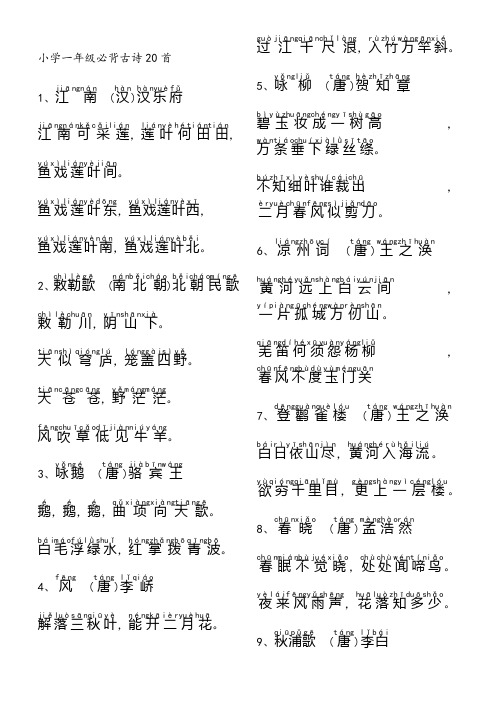 小学一年级必背古诗20首
jiāngnán hàn hànyuèfǔ
1、江 南 (汉)汉乐府
jiāngnánkěcǎilián liányèhétiántián
江南可采莲,莲叶何田田,
yúxìliányèjiān
鱼戏莲叶间。
yúxìliányèdōng yúxìliányèxī
鱼戏莲叶东,鱼戏莲叶西,
yúxìliányènán yúxìliányèběi
鱼戏莲叶南,鱼戏莲叶北。
chìlègē nánběicháo běicháomíngē
2、敕勒歌 (南北朝)北朝民歌
chìlèchuān yīnshānxià
敕勒川,阴山下。
tiānshìqiónglú lónggàisìyě
天似穹庐,笼盖四野。
tiāncāngcāng yěmángmáng
天苍苍,野茫茫。
fēngchuīcǎodījiànniúyáng
风吹草低见牛羊。
yǒngé táng jiàbīnwáng
3、咏鹅 (唐)骆宾王
é é qūxiàngxiàngtiāngē
鹅,鹅,鹅,曲项向天歌。
báimáofúlǜshuǐ hóngzhǎngbōqīngbō
白毛浮绿水,红掌拨青波。
fēng táng lǐqiáo
4、风 (唐)李峤
jiěluòsānqiūyè néngkāièryuèhuā
解落三秋叶,能开二月花。
guòjiāngqiānchǐlàng rùzhúwàngānxié
过江千尺浪,入竹万竿斜。
yǒngliǔ táng hèzhīzhāng
5、咏柳 (唐)贺知章
bìyùzhuāngchéngyīshùgāo
碧玉妆成一树高,
wàntiáochuíxiàlǜsītāo
万条垂下绿丝绦。
bùzhīxìyèshuícáichū
不知细叶谁裁出,
èryuèchūnfēngsìjiǎndāo
二月春风似剪刀。
liángzhōucí táng wángzhīhuàn
6、凉州词 (唐)王之涣
huánghéyuǎnshàngbáiyúnjiān
黄河远上白云间,
yīpiàngūchéngwànrènshān
一片孤城万仞山。
qiāngdíhéxūyuànyángliǔ
羌笛何须怨杨柳,
chūnfēngbùdùyùménguān
春风不度玉门关
dēngguànquèlóu táng wángzhīhuàn
7、登鹳雀楼 (唐)王之涣
báirìyīshānjìn huánghérùhǎiliú
白日依山尽,黄河入海流。
yùqióngqiānlǐmù gèngshàngyīcénglóu
欲穷千里目,更上一层楼。
chūnxiǎo táng mènghàorán
8、春晓 (唐)孟浩然
chūnmiánbùjuéxiǎo chùchùwéntíniǎo
春眠不觉晓,处处闻啼鸟。
yèláifēngyǔshēng huāluòzhīduōshǎo
夜来风雨声,花落知多少。
qiūpǔgē táng lǐbái
9、秋浦歌 (唐)李白